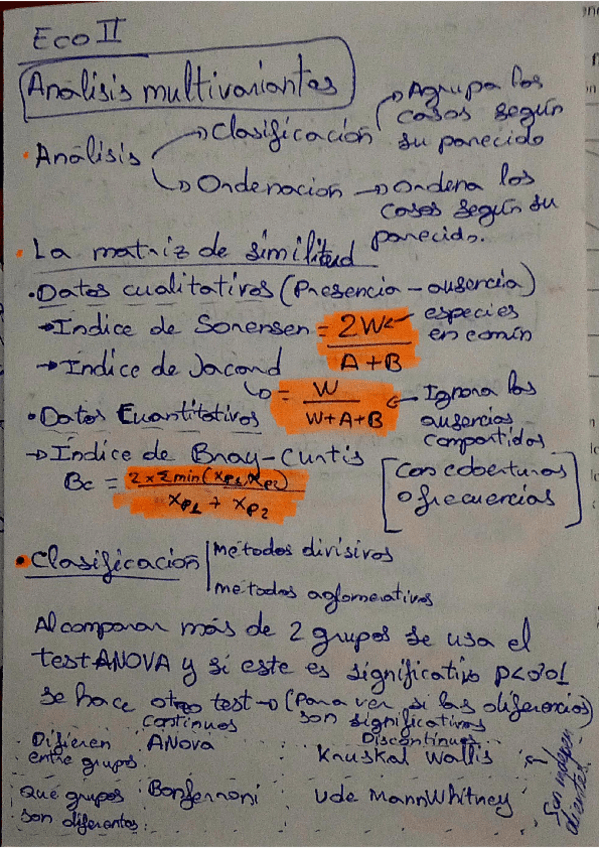 Eco II
Análisis multivariantes
• Análisis
→ Clasificación
→ Agrupa los
casos según
su parecido
→ Ordenación → Ordena los
casos según su
parecido.
• La matriz de similitud
• Datos cualitativos (Presencia - ausencia)
→ Índice de Sorensen = 2W / A+B
← especies
en común
→ Índice de Jacard
→ = W / W+A+B
← Ignora las
ausencias
compartidas
• Datos Cuantitativos
→ Índice de Bray-Curtis
Bc = 2 x Σ min(Xp1, Xp2) / Xp1 + Xp2
[Con coberturas
o frecuencias]
• Clasificación | métodos divisivos
| métodos aglomerativos
Al comparar más de 2 grupos se usa el
test ANOVA y si este es significativo p<0'01
se hace otro test → (Para ver si las diferencias)
son significativas
continuos
Discontinuos
Difieren
entre grupos
ANova
Kruskal Wallis
Qué grupos
son diferentes:
Bonferroni
U de Mann Whitney
Son indepen
dientes